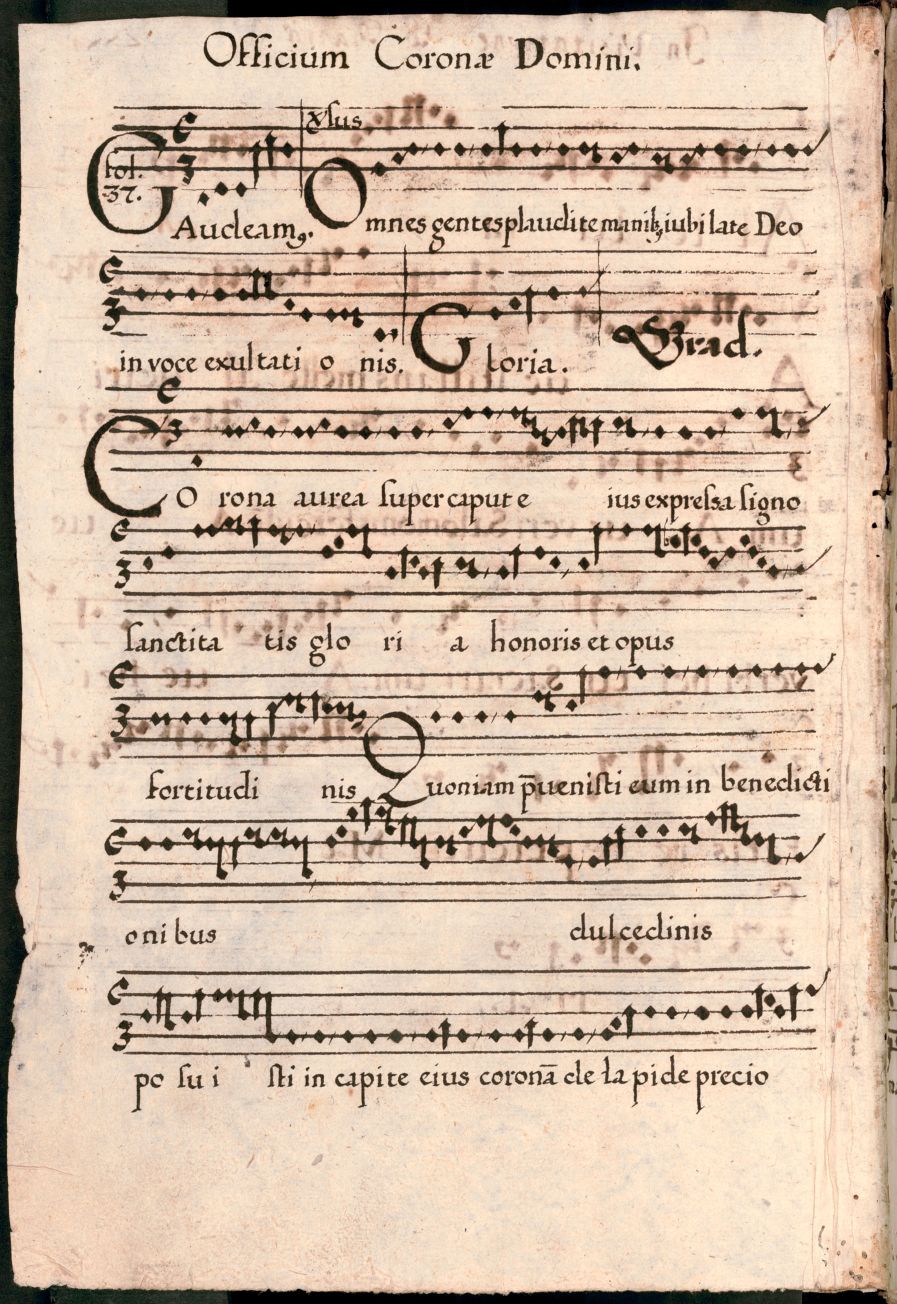 Officium Coronæ Domini.
xlus
fol.
37.
GAudeamꝰ. Omnes gentes plaudite manibꝫ iubilate Deo
in voce exultati o nis. Gloria. Grad.
CO rona aurea super caput e ius expressa signo
sanctita tis glo ri a honoris et opus
fortitudi nis Quoniam p̄uenisti eum in benedicti
oni bus dulcedinis
po su i sti in capite eius coronā de lapide precio